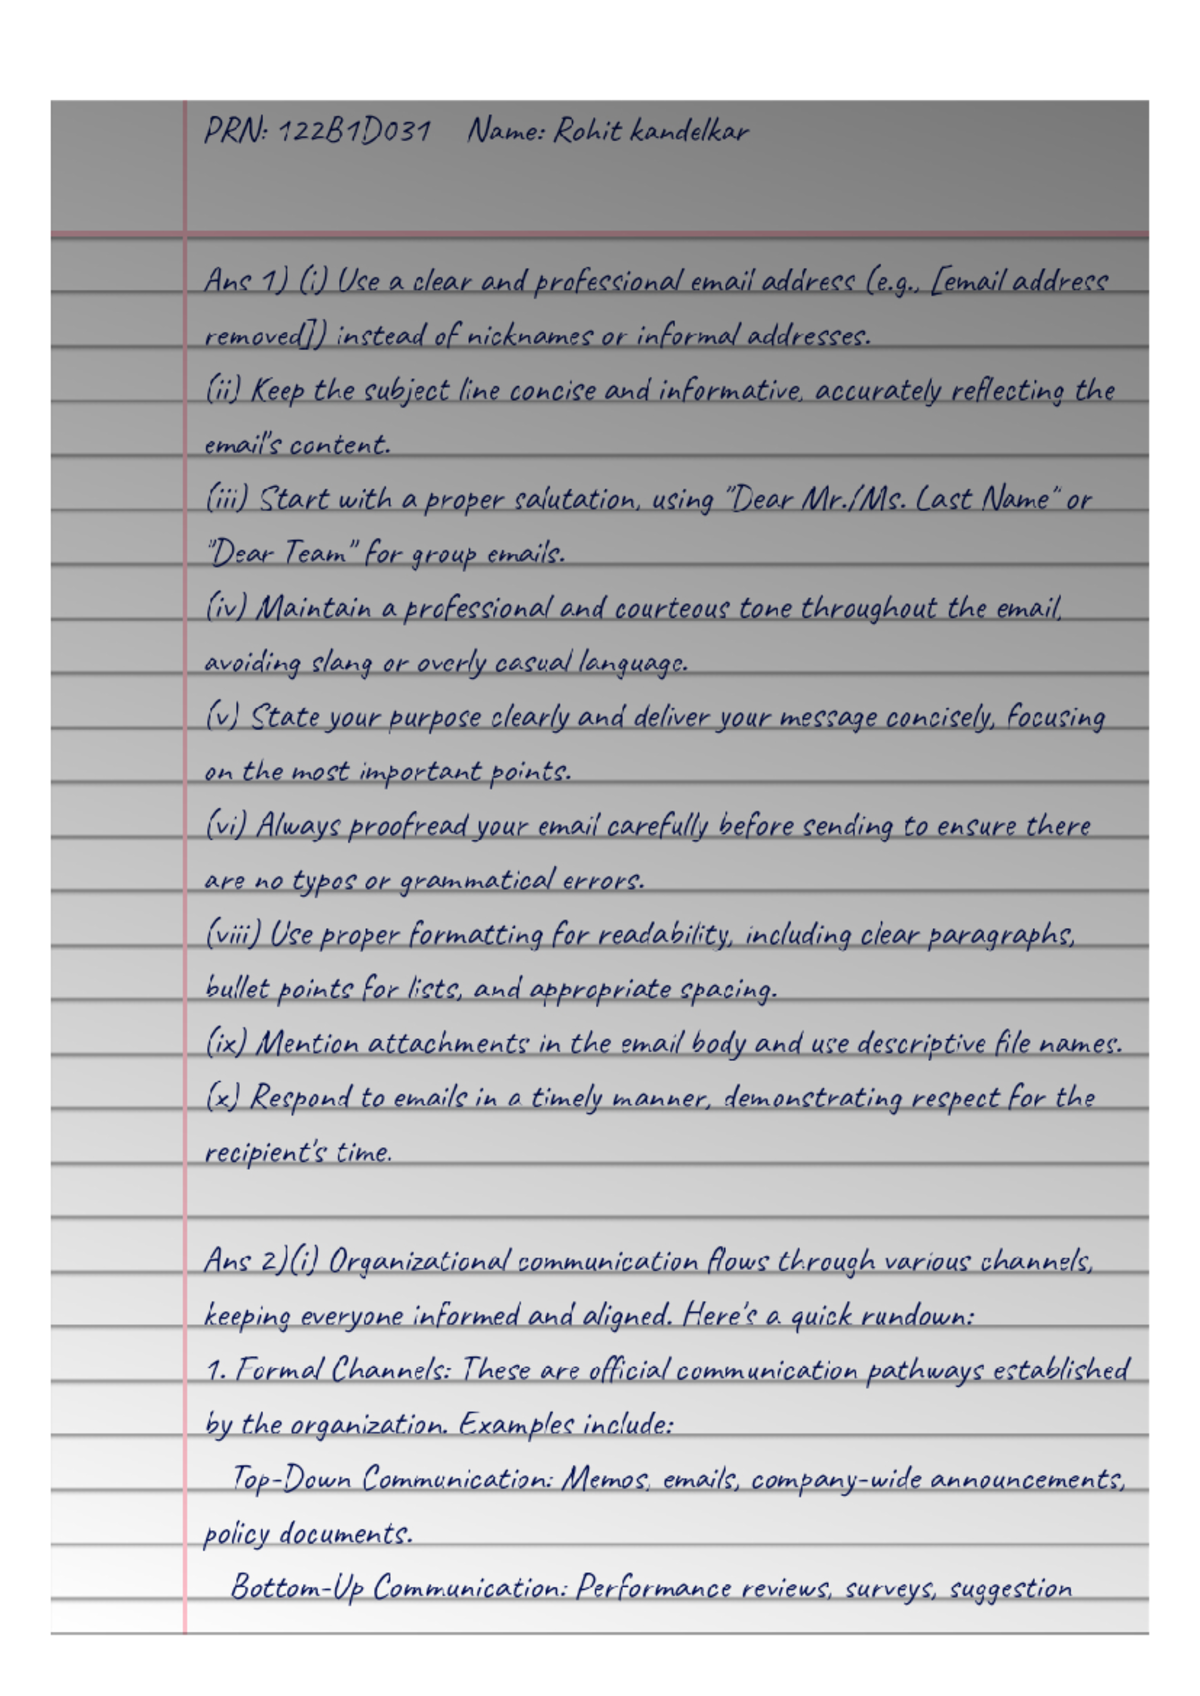 PRN: 122B1D031 Name: Rohit kandelkar
Ans 1) (i) Use a clear and professional email address (e.g., [email address
removed]) instead of nicknames or informal addresses.
(ii) Keep the subject line concise and informative, accurately reflecting the
email's content.
(iii) Start with a proper salutation, using "Dear Mr./Ms. Last Name" or
"Dear Team" for group emails.
(iv) Maintain a professional and courteous tone throughout the email,
avoiding slang or overly casual language.
(v) State your purpose clearly and deliver your message concisely, focusing
on the most important points.
(vi) Always proofread your email carefully before sending to ensure there
are no typos or grammatical errors.
(viii) Use proper formatting for readability, including clear paragraphs,
bullet points for lists, and appropriate spacing.
(ix) Mention attachments in the email body and use descriptive file names.
(x) Respond to emails in a timely manner, demonstrating respect for the
recipient's time.
Ans 2)(i) Organizational communication flows through various channels,
keeping everyone informed and aligned. Here's a quick rundown:
1. Formal Channels: These are official communication pathways established
by the organization. Examples include:
Top-Down Communication: Memos, emails, company-wide announcements,
policy documents.
Bottom-Up Communication: Performance reviews, surveys, suggestion